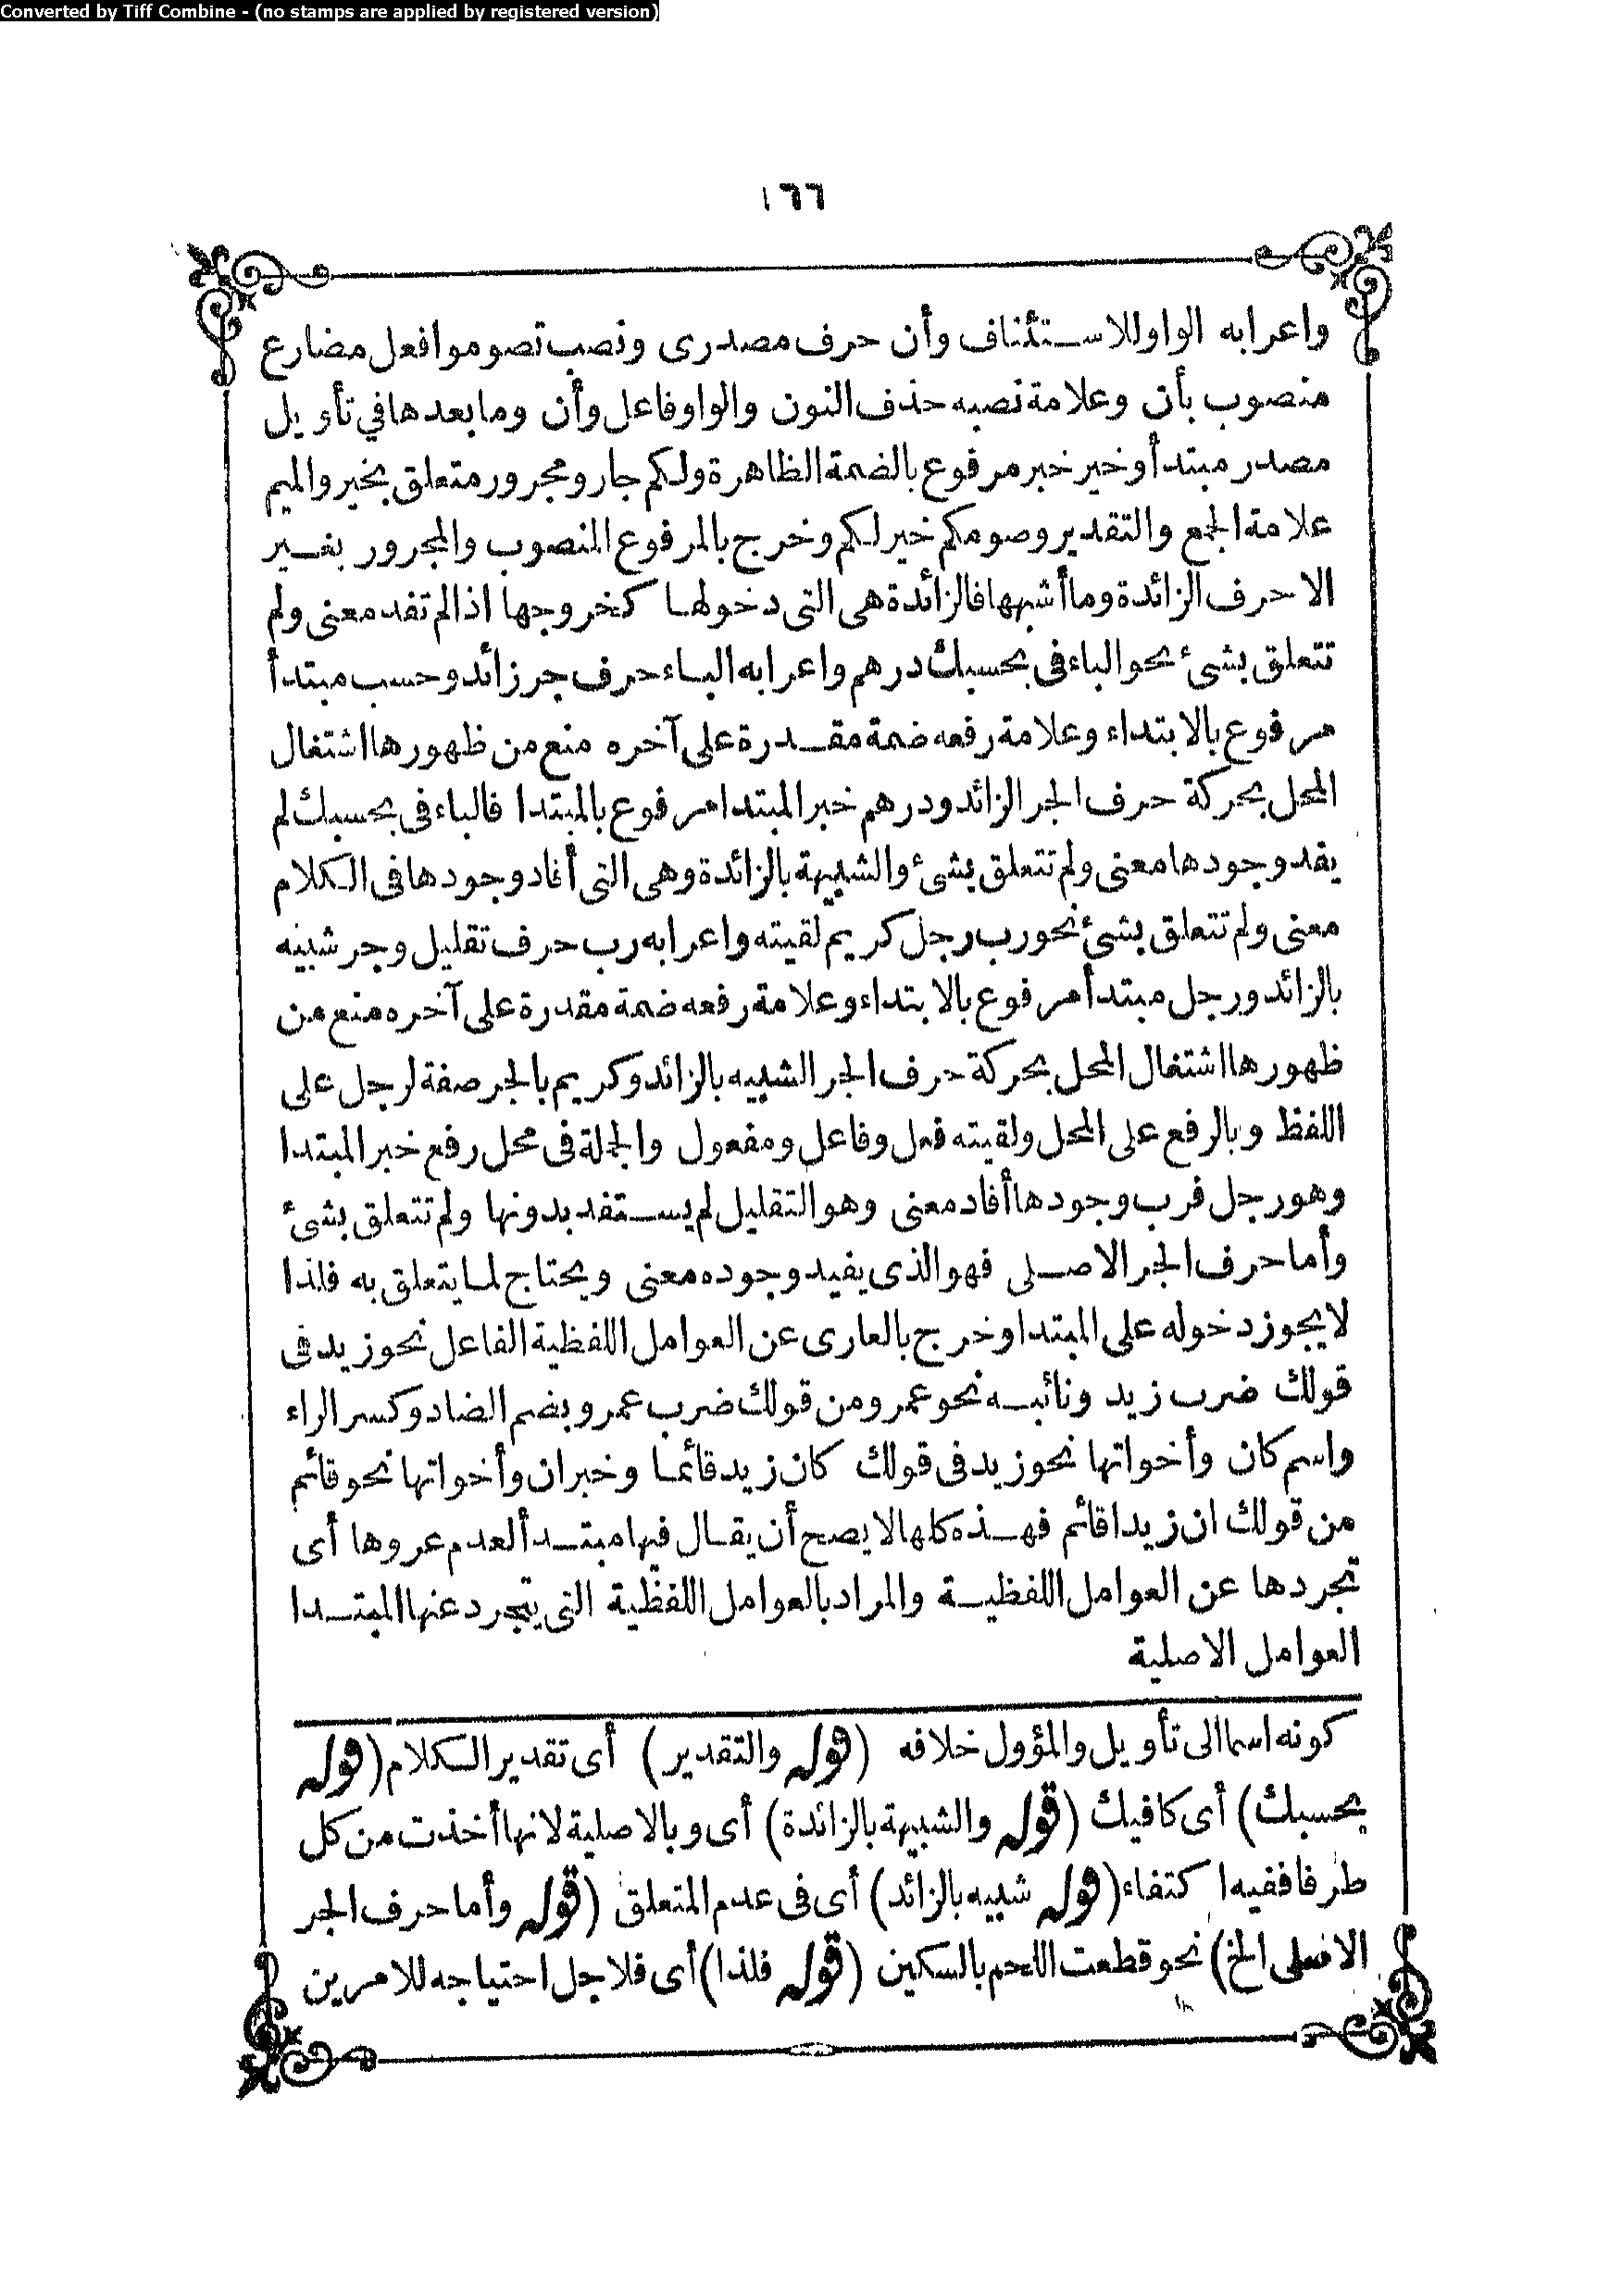 Converted by Tiff Combine - (no stamps are applied by registered version)
١٦٦
واعرابه الواو للاستئناف وأن حرف مصدرى ونصب تصوموا فعل مضارع
منصوب بأن وعلامة نصبه حذف النون والواو فاعل وأن وما بعدها في تأويل
مصدر مبتدأ وخير خبر مرفوع بالضمة الظاهرة ولكم جار ومجرور متعلق بخير والميم
علامة الجمع والتقدير وصومكم خير لكم وخرج بالمرفوع المنصوب والمجرور بغير
الاحرف الزائدة وما أشبهها فالزائدة هى التى دخولها كخروجها اذا لم تفد معنى ولم
تتعلق بشئ نحو الباء فى بحسبك درهم واعرابه الباء حرف جر زائد وحسب مبتدأ
مرفوع بالابتداء وعلامة رفعه ضمة مقدرة على آخره منع من ظهورها اشتغال
المحل بحركة حرف الجر الزائد ودرهم خبر المبتدا مرفوع بالمبتدا فالباء فى بحسبك لم
يفد وجودها معنى ولم تتعلق بشئ والشبيهة بالزائدة وهى التى أفاد وجودها فى الكلام
معنى ولم تتعلق بشئ نحو رب رجل كريم لقيته واعرابه رب حرف تقليل وجر شبيه
بالزائد ورجل مبتدأ مرفوع بالابتداء وعلامة رفعه ضمة مقدرة على آخره منع من
ظهورها اشتغال المحل بحركة حرف الجر الشبيه بالزائد وكريم بالجر صفة لرجل على
اللفظ وبالرفع على المحل ولقيته فعل وفاعل ومفعول والجملة فى محل رفع خبر المبتدا
وهو رجل فرب وجودها أفاد معنى وهو التقليل لم يستفد بدونها ولم تتعلق بشئ
وأما حرف الجر الاصلى فهو الذى يفيد وجوده معنى ويحتاج لما يتعلق به فلذا
لا يجوز دخوله على المبتدا وخرج بالعارى عن العوامل اللفظية الفاعل نحو زيد فى
قولك ضرب زيد ونائبه نحو عمرو من قولك ضرب عمرو بضم الضاد وكسر الراء
واسم كان وأخواتها نحو زيد فى قولك كان زيد قائما وخبر ان وأخواتها نحو قائم
من قولك ان زيدا قائم فهذه كلها لا يصح أن يقال فيها مبتدأ لعدم عروها أى
تجردها عن العوامل اللفظية والمراد بالعوامل اللفظية التى يتجرد عنها المبتدا
العوامل الاصلية
كونه اسما الى تأويل والمؤول خلافه (قوله والتقدير) أى تقدير الكلام (قوله
بحسبك) أى كافيك (قوله والشبيهة بالزائدة) أى وبالاصلية لانها أخذت من كل
طرفا ففيه اكتفاء (قوله شبيه بالزائد) أى فى عدم المتعلق (قوله وأما حرف الجر
الاصلى الخ) نحو قطعت اللحم بالسكين (قوله فلذا) أى فلاجل احتياجه للامرين